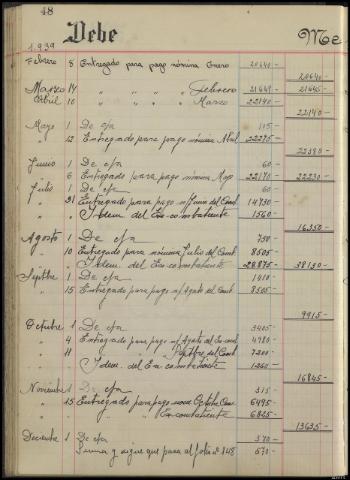 48
Debe Me
1.939
Febrero 8 Entregado para pago nómina Enero 20640-
20640-
Marzo 14 " " " " Febrero 21645- 21645-
Abril 10 " " " " Marzo 22140-
22140-
Mayo 1 De c/a 105-
" 12 Entregado para pago nómina Abril 22275-
22380-
Junio 1 De c/a 60-
" 6 Entregado para pago nómina Mayo 22170- 22230-
Julio 1 De c/a 60-
" 21 Entregado para pago Junio del Comb 14730
" Idem. del Ex-combatiente 1560-
16350-
Agosto 1 De c/a 750-
" 10 Entregado para nómina Julio del Comb 8505-
" Idem. del Ex-combatiente 28875 38130-
Septbre 1 De c/a 1410-
" 15 Entregado para pago n/ Agosto del Comb 8505-
9915-
Octubre 1 De c/a 3405-
" 4 Entregado para pago n/ Agosto del Ex-comb 4980-
" 11 " " " Septbre del Comb 7200-
" Idem. del Ex-combatiente 1260-
16845-
Noviembre 1 De c/a 315-
" 15 Entregado para pago Octubre Com 6495-
" " " " Ex-combatiente 6825-
13635-
Diciembre 1 De c/a 570-
Suma y sigue que pasa al folio nº 148 570-